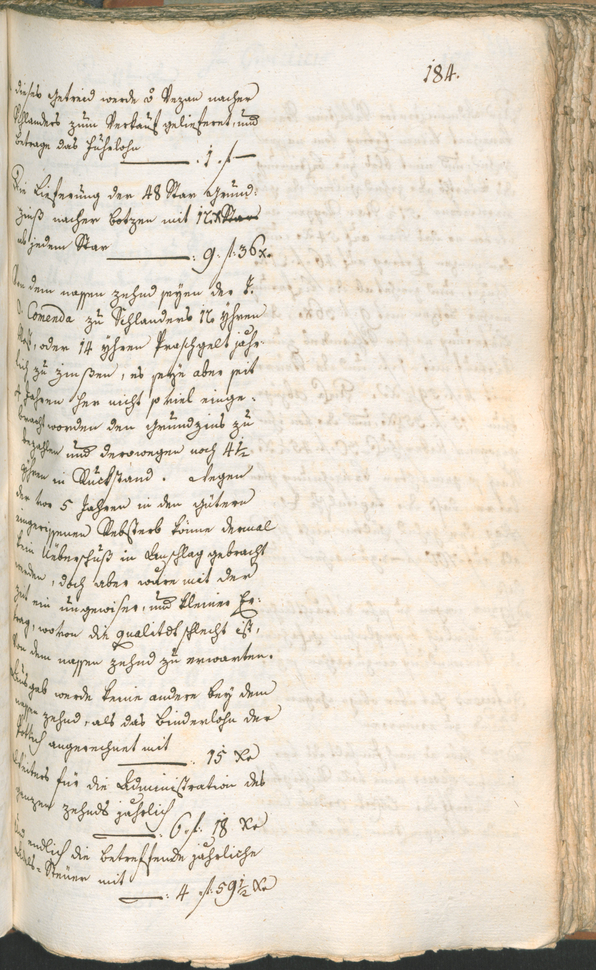 184.
dieses Getreid werde v: Vezan nacher
Schlanders zum Verkauf gelieferet, und
betrage das Fuhrlohn
: 1 f —
Die Lieferung der 48 Star Grund:
zinß nacher Botzen mit 12 x Star
als jedem Star
: 9 f: 36 x.
Von dem nassen zehnd seyen der
D. Comenda zu Schlanders 12 Yhren
oder 14 Yhren Praschgelt jähr
lich zu zinßen, es seye aber seit
Jahren her nicht so viel einge:
bracht worden den Grundzins zu
bezahlen und derowegen noch 4½
Yhren in Ruckstand. Wegen
der vor 5 Jahren in den Gütern
eingerissenen Rebsterb könne dermal
kein Ueberschuß in Anschlag gebracht
werden, doch aber wäre mit der
Zeit ein ungewiser, und kleiner Er:
trag, wovon die qualitet schlecht ist,
von dem nassen zehnd zu erwarten.
Ausgab werde keine andere bey dem
nassen zehnd, als das Binderlohn der
angerechnet mit
: 15 xr
Weiters für die Administration des
ganzen zehends jährlich
: 6 f: 18 xr
Und endlich die betreffende jährliche
Steuer mit
: 4 f 59½ xr